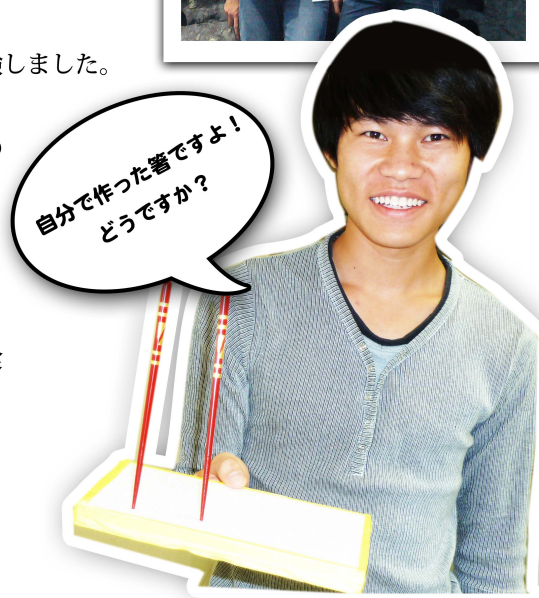 しました。
自分で作った箸ですよ！
どうですか？